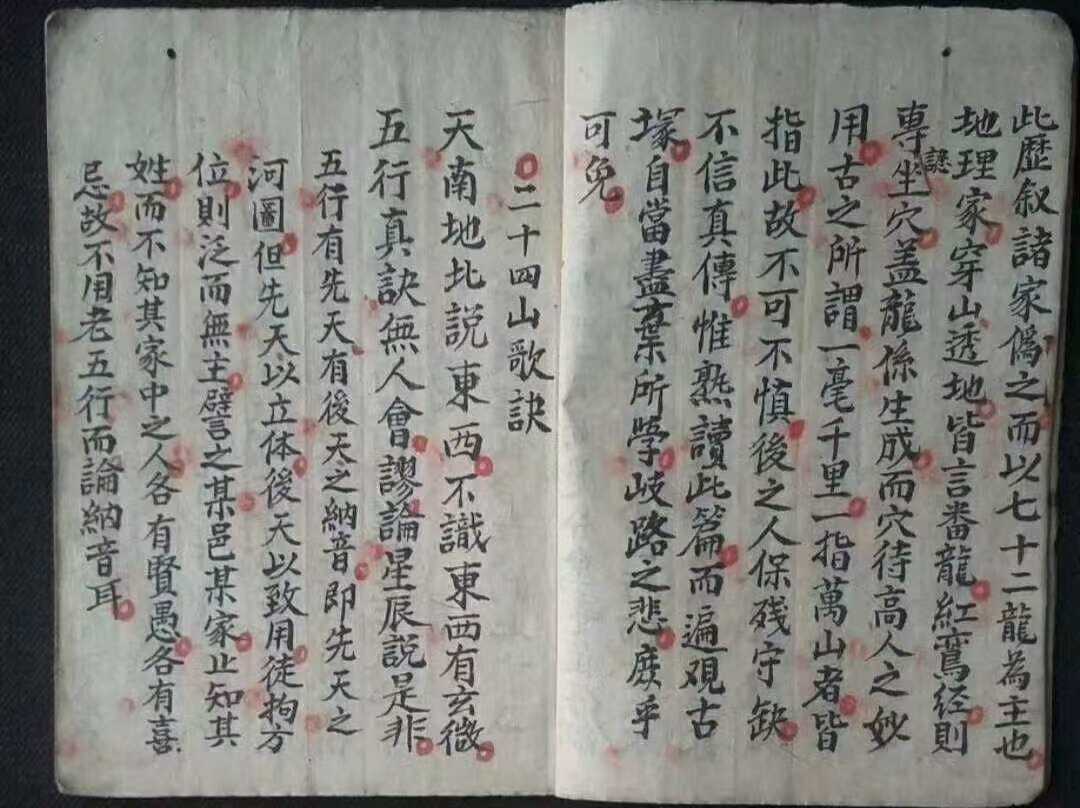 此歷叙諸家僞之而以七十二龍為主也
地理家穿山透地皆言番龍紅鸞经則
專諡坐穴盖龍係生成而穴待高人之妙
用古之所謂一毫千里一指萬山者皆
指此故不可不慎後之人保残守缺
不信真傳惟熟讀此篇而遍观古
塚自當盡棄所學岐路之悲庶乎
可免
二十四山歌訣
天南地北説東西不識東西有玄微
五行真訣無人會謬論星辰説是非
五行有先天有後天之納音即先天之
河圖但先天以立体後天以致用徒拘方
位則泛而無主譬之某邑某家止知其
姓而不知其家中之人各有賢愚各有喜
忌故不用老五行而論納音耳